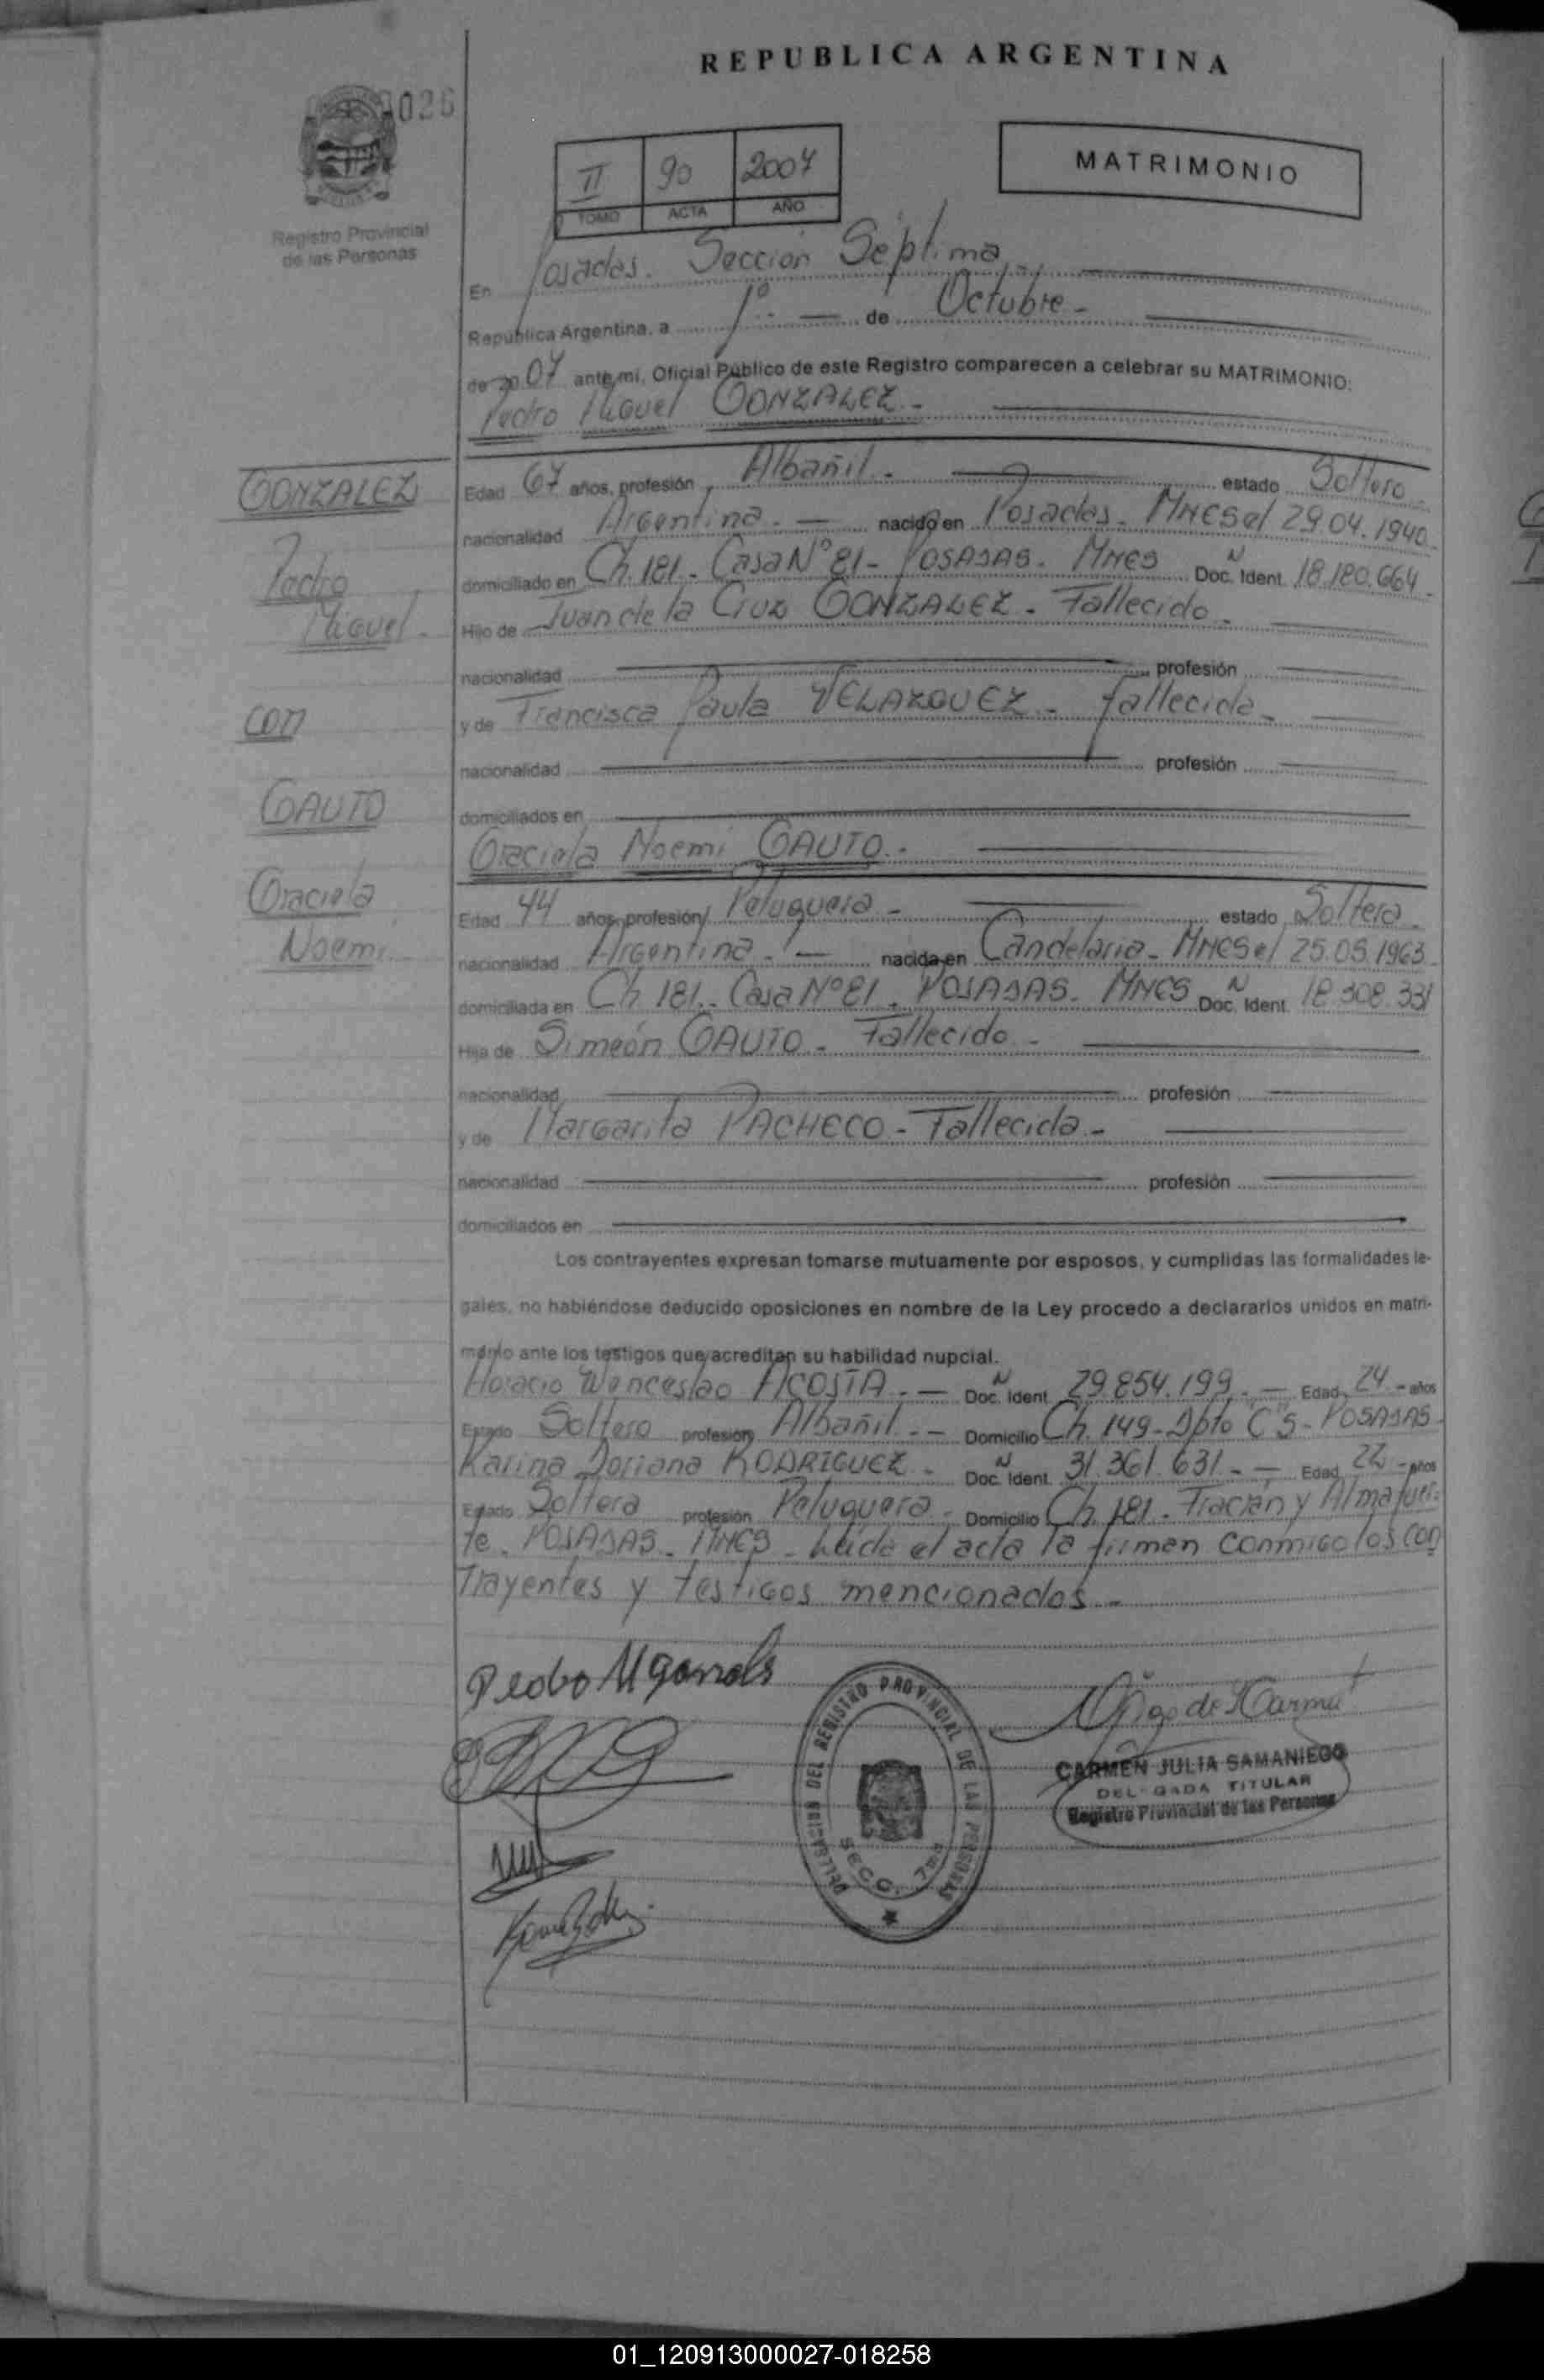 REPUBLICA ARGENTINA
026
II 90 2007
TOMO ACTA AÑO
MATRIMONIO
Registro Provincial
de las Personas
En Posadas. Sección Séptima
República Argentina, a 1º de Octubre
de 2007 ante mí, Oficial Público de este Registro comparecen a celebrar su MATRIMONIO:
Pedro Miguel GONZALEZ
GONZALEZ
Pedro
Miguel
con
GAUTO
Graciela
Noemi
Edad 67 años, profesión Albañil estado Soltero
nacionalidad Argentina. nacido en Posadas. MNES el 29.04.1940
domiciliado en Ch. 181. Casa Nº 81 - POSADAS. MNES Doc. Ident. N 18.180.664
Hijo de Juan de la Cruz GONZALEZ - Fallecido
nacionalidad profesión
y de Francisca Paula VELAZQUEZ - fallecida
nacionalidad profesión
domiciliados en
Graciela Noemi GAUTO.-
Edad 44 años, profesión Peluquera - estado Soltera
nacionalidad Argentina. nacida en Candelaria - MNES el 25.05.1963
domiciliada en Ch 181. Casa Nº 81. POSADAS. MNES Doc. Ident. N 18.308.331
Hija de Simeón GAUTO - Fallecido
nacionalidad profesión
y de Margarita PACHECO - Fallecida -
nacionalidad profesión
domiciliados en
Los contrayentes expresan tomarse mutuamente por esposos, y cumplidas las formalidades le-
gales, no habiéndose deducido oposiciones en nombre de la Ley procedo a declararlos unidos en matri-
monio ante los testigos que acreditan su habilidad nupcial.
Horacio Wenceslao ACOSTA. - Doc. Ident. N 29.854.199. - Edad 24 - años
Estado Soltero profesión Albañil. - Domicilio Ch. 149 - Dpto "C" 5 - POSADAS
Karina Doriana RODRIGUEZ - Doc. Ident. N 31.361.631. - Edad 22 - años
Estado Soltera profesión Peluquera Domicilio Ch. 181. Fracrán y Almafuer-
te. POSADAS. MNES - Leída el acta la firman conmigo los con
trayentes y testigos mencionados. -
Pedro M gonzals
DELEGACION DEL REGISTRO PROVINCIAL DE LAS PERSONAS
SECC. 7ma
CARMEN JULIA SAMANIEGO
DELEGADA TITULAR
Registro Provincial de las Personas
01_120913000027-018258